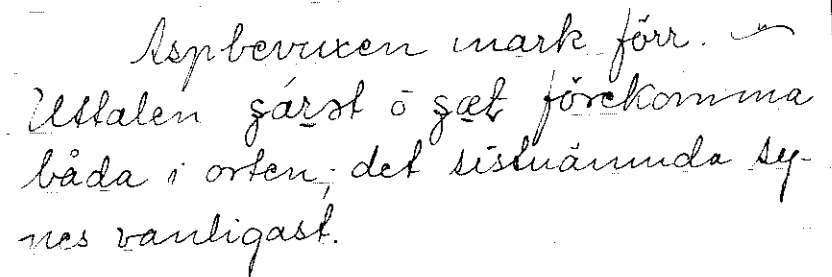 Aspbevuxen mark förr. —
Uttalen gárət o gæt förekomma
båda i orten; det sistnämnda sy-
nes vanligast.